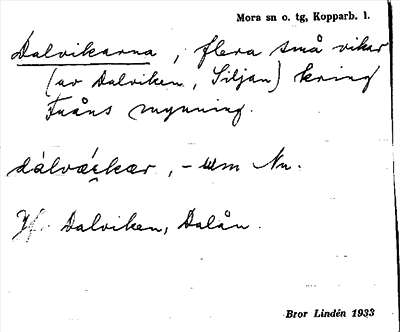 Mora sn o. tg, Kopparb. l.
Dalvikarna, flera små vikar
(av Dalviken, Siljan) kring
Fuåns mynning.
dálvǽkær, - Nu.
Jf. Dalviken, Dalån.
Bror Lindén 1933